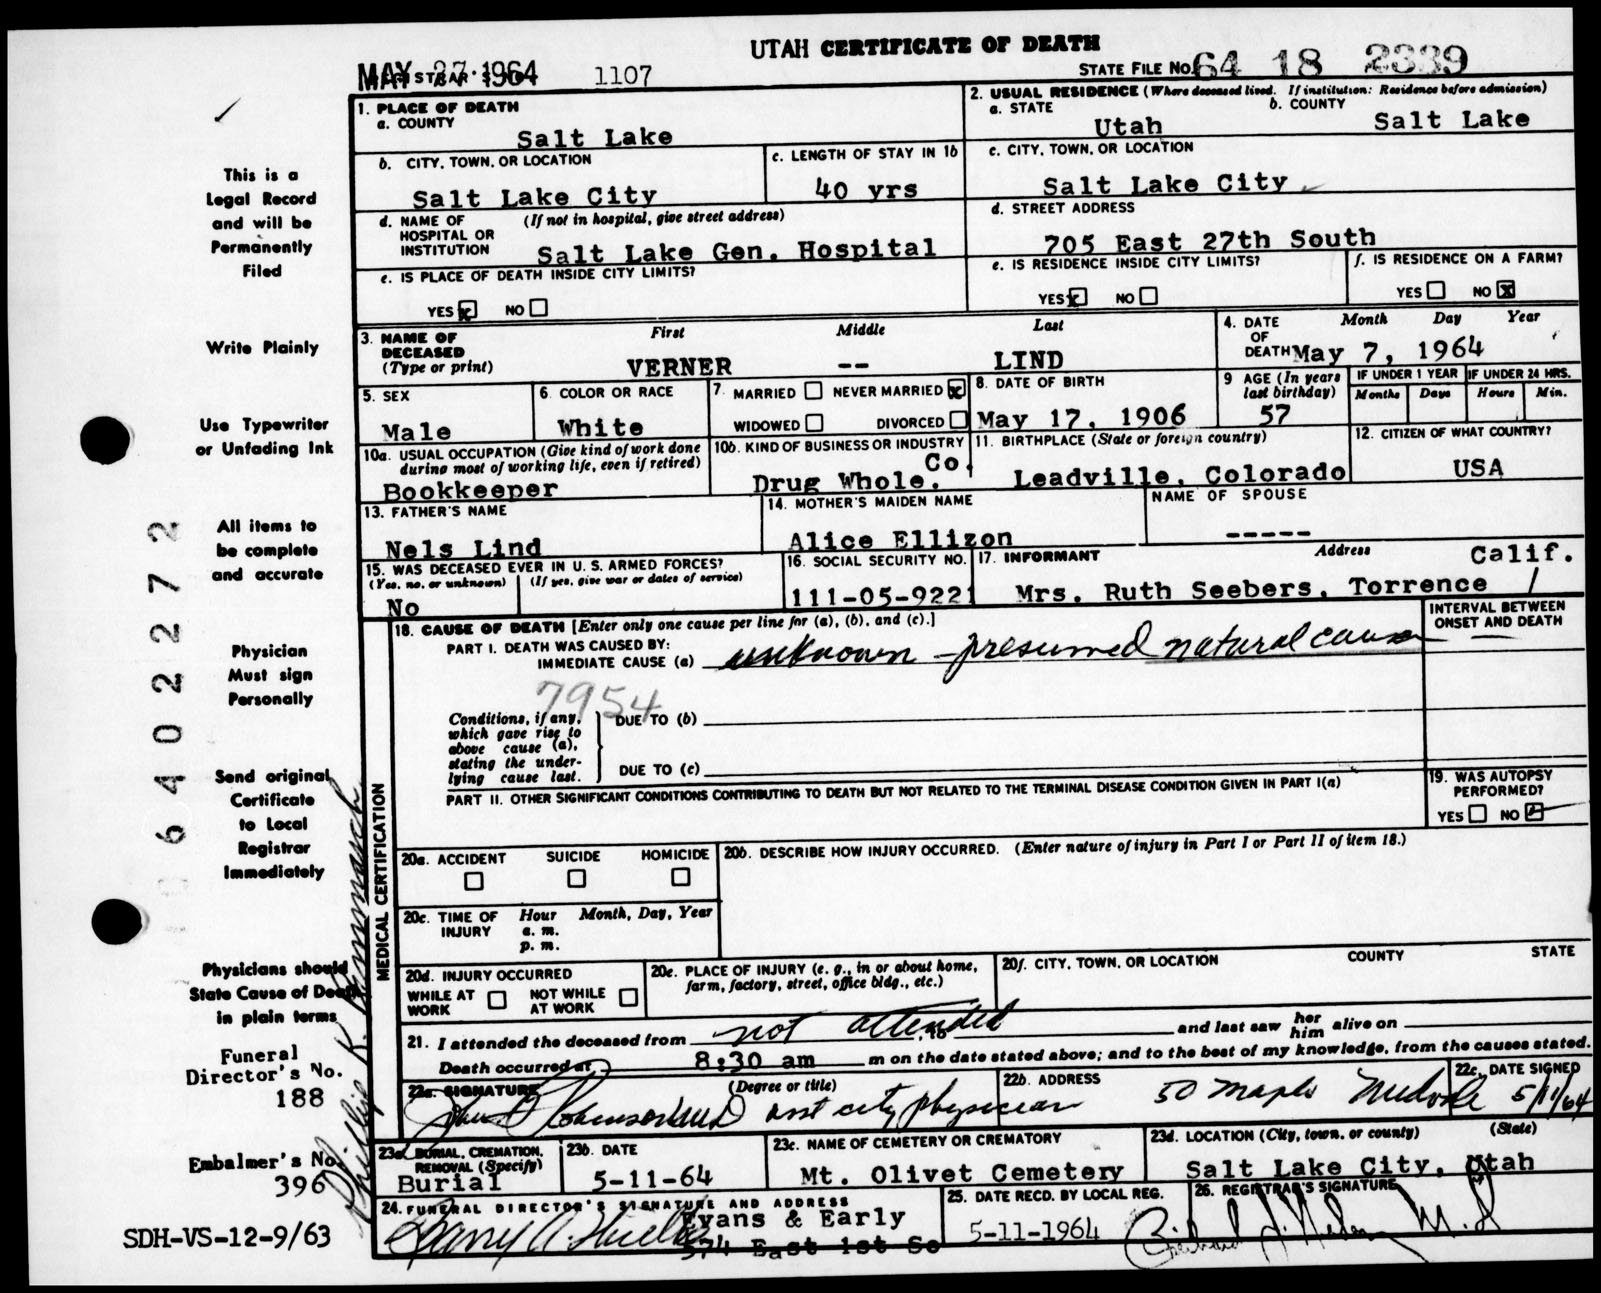 UTAH CERTIFICATE OF DEATH
MAY 27 1964 1107 STATE FILE NO. 64 18 2339
1. PLACE OF DEATH
a. COUNTY
Salt Lake
2. USUAL RESIDENCE (Where deceased lived. If institution: Residence before admission)
a. STATE b. COUNTY
Utah Salt Lake
b. CITY, TOWN, OR LOCATION
Salt Lake City
c. LENGTH OF STAY IN 1b
40 yrs
c. CITY, TOWN, OR LOCATION
Salt Lake City
d. NAME OF HOSPITAL OR INSTITUTION (If not in hospital, give street address)
Salt Lake Gen. Hospital
d. STREET ADDRESS
705 East 27th South
e. IS PLACE OF DEATH INSIDE CITY LIMITS?
YES x NO
e. IS RESIDENCE INSIDE CITY LIMITS?
YES x NO
f. IS RESIDENCE ON A FARM?
YES NO x
3. NAME OF DECEASED (Type or print)
First Middle Last
VERNER -- LIND
4. DATE OF DEATH Month Day Year
May 7, 1964
5. SEX
Male
6. COLOR OR RACE
White
7. MARRIED NEVER MARRIED x
WIDOWED DIVORCED
8. DATE OF BIRTH
May 17, 1906
9 AGE (In years last birthday)
57
IF UNDER 1 YEAR IF UNDER 24 HRS.
Months Days Hours Min.
10a. USUAL OCCUPATION (Give kind of work done during most of working life, even if retired)
Bookkeeper
10b. KIND OF BUSINESS OR INDUSTRY
Drug Whole. Co.
11. BIRTHPLACE (State or foreign country)
Leadville, Colorado
12. CITIZEN OF WHAT COUNTRY?
USA
13. FATHER'S NAME
Nels Lind
14. MOTHER'S MAIDEN NAME
Alice Ellizon
NAME OF SPOUSE
-----
15. WAS DECEASED EVER IN U. S. ARMED FORCES?
(Yes, no, or unknown) (If yes, give war or dates of service)
No
16. SOCIAL SECURITY NO.
111-05-9221
17. INFORMANT Address
Mrs. Ruth Seebers, Torrence Calif.
18. CAUSE OF DEATH [Enter only one cause per line for (a), (b), and (c).]
INTERVAL BETWEEN ONSET AND DEATH
PART I. DEATH WAS CAUSED BY:
IMMEDIATE CAUSE (a) unknown - presumed natural cause
7954
Conditions, if any, which gave rise to above cause (a), stating the underlying cause last.
DUE TO (b)
DUE TO (c)
PART II. OTHER SIGNIFICANT CONDITIONS CONTRIBUTING TO DEATH BUT NOT RELATED TO THE TERMINAL DISEASE CONDITION GIVEN IN PART I(a)
19. WAS AUTOPSY PERFORMED?
YES NO
20a. ACCIDENT SUICIDE HOMICIDE
20b. DESCRIBE HOW INJURY OCCURRED. (Enter nature of injury in Part I or Part II of item 18.)
20c. TIME OF INJURY Hour Month, Day, Year
a. m.
p. m.
20d. INJURY OCCURRED
WHILE AT WORK NOT WHILE AT WORK
20e. PLACE OF INJURY (e. g., in or about home, farm, factory, street, office bldg., etc.)
20f. CITY, TOWN, OR LOCATION COUNTY STATE
21. I attended the deceased from not attended, to and last saw her him alive on
Death occurred at 8:30 am m on the date stated above; and to the best of my knowledge, from the causes stated.
22a. SIGNATURE (Degree or title)
asst city physician
22b. ADDRESS
50 Maple Midvale
22c. DATE SIGNED
5/11/64
23a. BURIAL, CREMATION, REMOVAL (Specify)
Burial
23b. DATE
5-11-64
23c. NAME OF CEMETERY OR CREMATORY
Mt. Olivet Cemetery
23d. LOCATION (City, town, or county) (State)
Salt Lake City, Utah
24. FUNERAL DIRECTOR'S SIGNATURE AND ADDRESS
Evans & Early
574 East 1st So
25. DATE RECD. BY LOCAL REG.
5-11-1964
26. REGISTRAR'S SIGNATURE
MEDICAL CERTIFICATION
This is a
Legal Record
and will be
Permanently
Filed
Write Plainly
Use Typewriter
or Unfading Ink
All items to
be complete
and accurate
Physician
Must sign
Personally
Send original
Certificate
to Local
Registrar
Immediately
Physicians should
State Cause of Death
in plain terms
Funeral
Director's No.
188
Embalmer's No.
396
SDH-VS-12-9/63
64022272